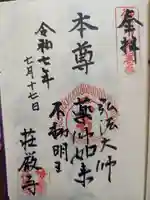 奉拝
本尊
弘法大師
薬師如来
不動明王
令和七年
七月十七日
荘厳寺